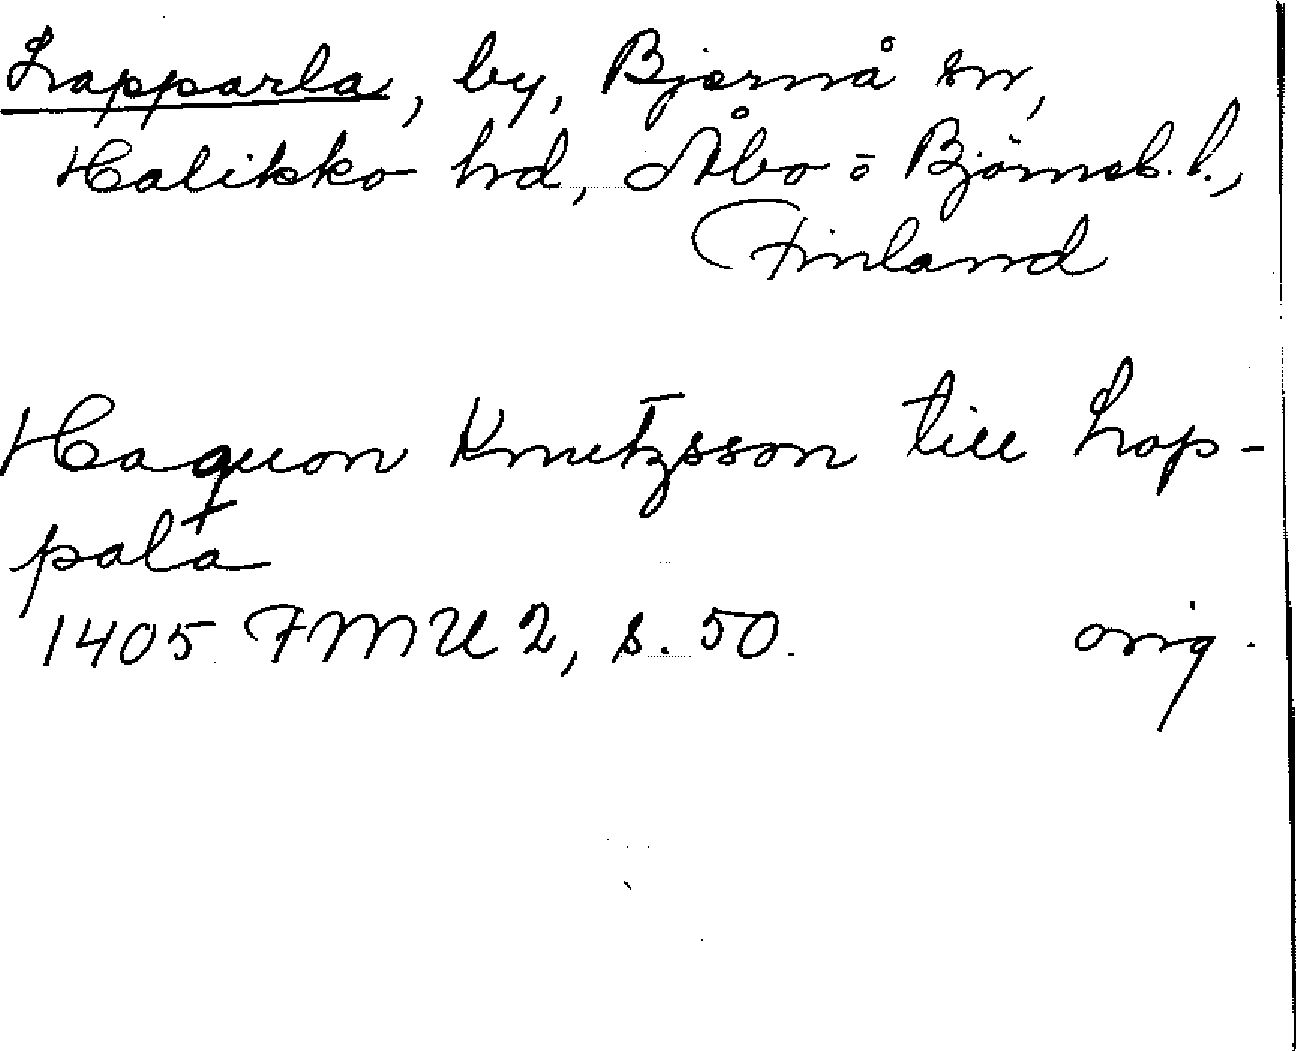 Lapparla, by, Bjärnå sn,
Halikko hd, Åbo o Björneb. l.,
Finland
Haquon Knutzsson till Lap-
pala
1405 FMU 2, s. 50. orig.